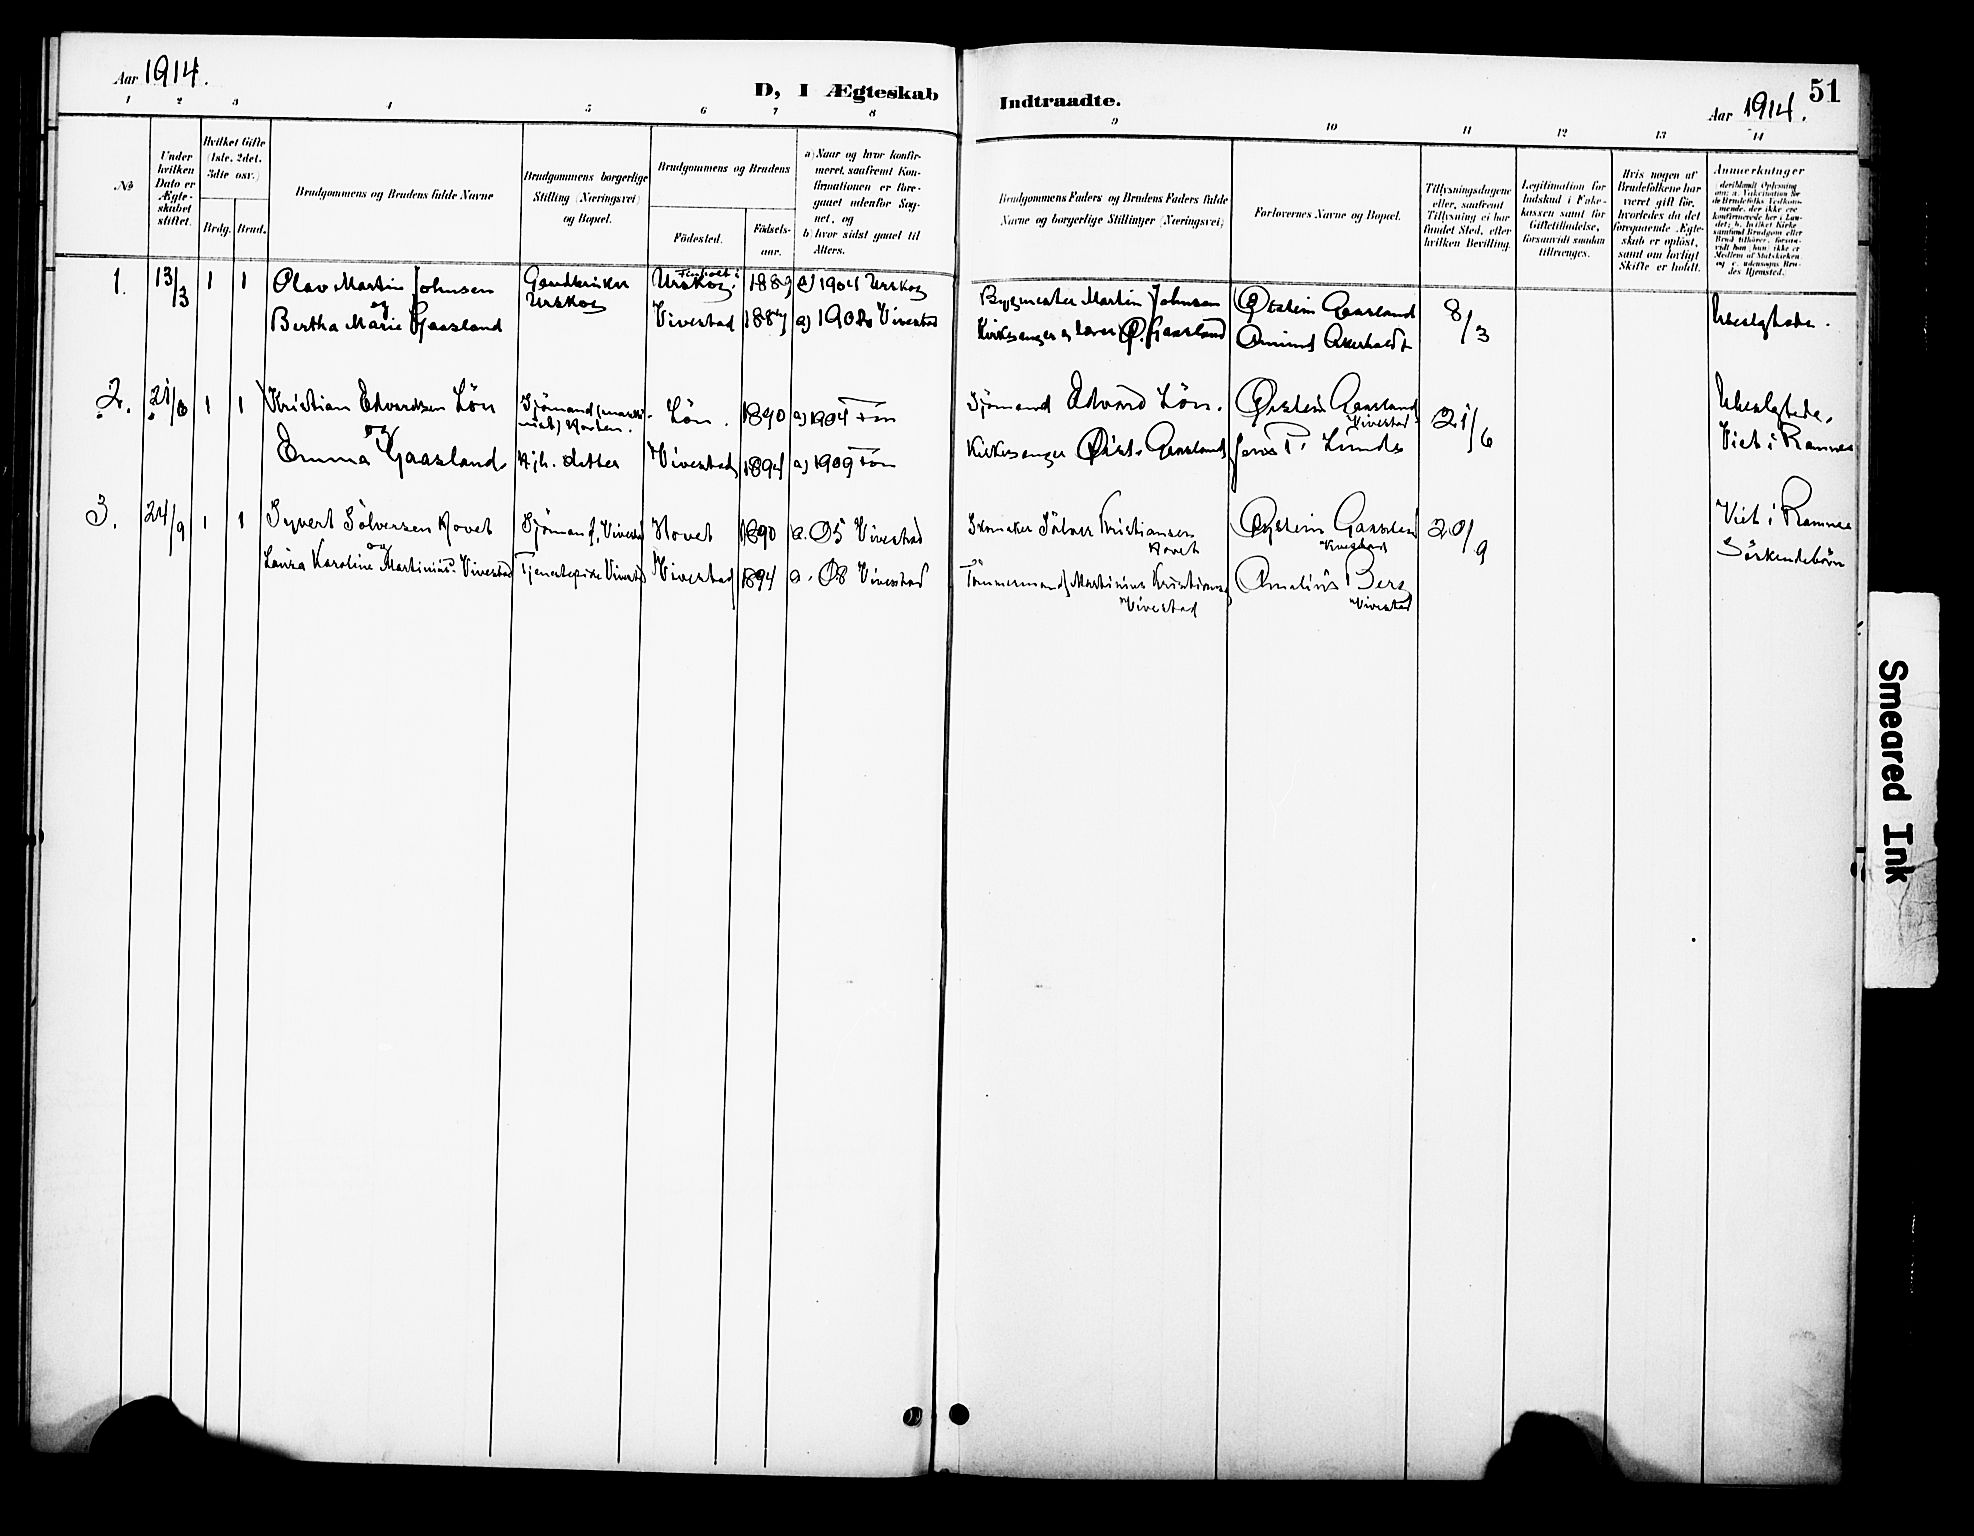 Aar 1914.
D, I Ægteskab
Indtraadte.
Aar 1914.
51
1 2 3 4 5 6 7 8
9 10 11 12 13 14
№
Under
hvilken
Dato er
Ægte-
skabet
stiftet.
Hvilket Gifte
(1ste, 2det,
3die osv.)
Brdg. Brud.
Brudgommens og Brudens fulde Navne
Brudgommens borgerlige
Stilling (Næringsvei)
og Bopæl.
Brudgommens og Brudens
Födested.
Födsels-
aar.
a) Naar og hvor konfir-
meret, saafremt Kon-
firmationen er fore-
gaaet udenfor Sog-
net, og
b) hvor sidst gaaet til
Alters.
Brudgommens Faders og Brudens Faders fulde
Navne og borgerlige Stillinger (Næringsvei)
Forlovernes Navne og Bopæl.
Tillysningsdagene
eller, saafremt
Tillysning ei har
fundet Sted, efter
hvilken Bevilling.
Legitimation for
Indskud i Enke-
kassen samt for
Giftetilladelse,
forsaavidt saadan
tiltrænges.
Hvis nogen af
Brudefolkene har
været gift för,
hvorledes da det
foregaaende Ægte-
skab er oplöst,
samt om lovligt
Skifte er holdt.
Anmærkninger
1. 13/3 1 1 Olav Martin Johnsen
og
Bertha Marie Gaasland
Urskog
Urskog. 1889 a) 1904 Urskog
Vivestad 1887 a) 190 Vivestad
Bygmester Martin Johnsen
Kirkesanger og lærer Ø. Gaasland
Øistein Gaasland
Amund
8/3
Ubeslgtede.
2. 21/6 1 1 Kristian Edvardsen Lön
og
Emma Gaasland
Sjömand
Horten.
Kjh. datter
Lön. 1890 a) 1904 Fön
Vivestad 1894 a) 1909 Fön
Sjömand Edvard Lön.
Kirkesanger Øist. Gaasland
Øistein Gaasland
Vivestad
Jens P. Linnes
21/6
Ubeslgtede.
Viet i Ramnes
3. 24/9 1 1 Syvert Sölversen Hovet
og
Laura Karoline Martinius. Vivestad
Sjöman f. Vivestad
Tjenestepike Vivestad
Hovet 1890 a. 05 Vivestad
Vivestad 1894 a. 08 Vivestad
Skomaker Sölver Kristiansen
Hovet
Tömmermand Martinius Kristiansen
Vivestad
Øystein Gaasland
Vivestad
Amalius Berg
Vivestad
20/9
Viet i Ramnes
Sörkendebörn
Smeared Ink